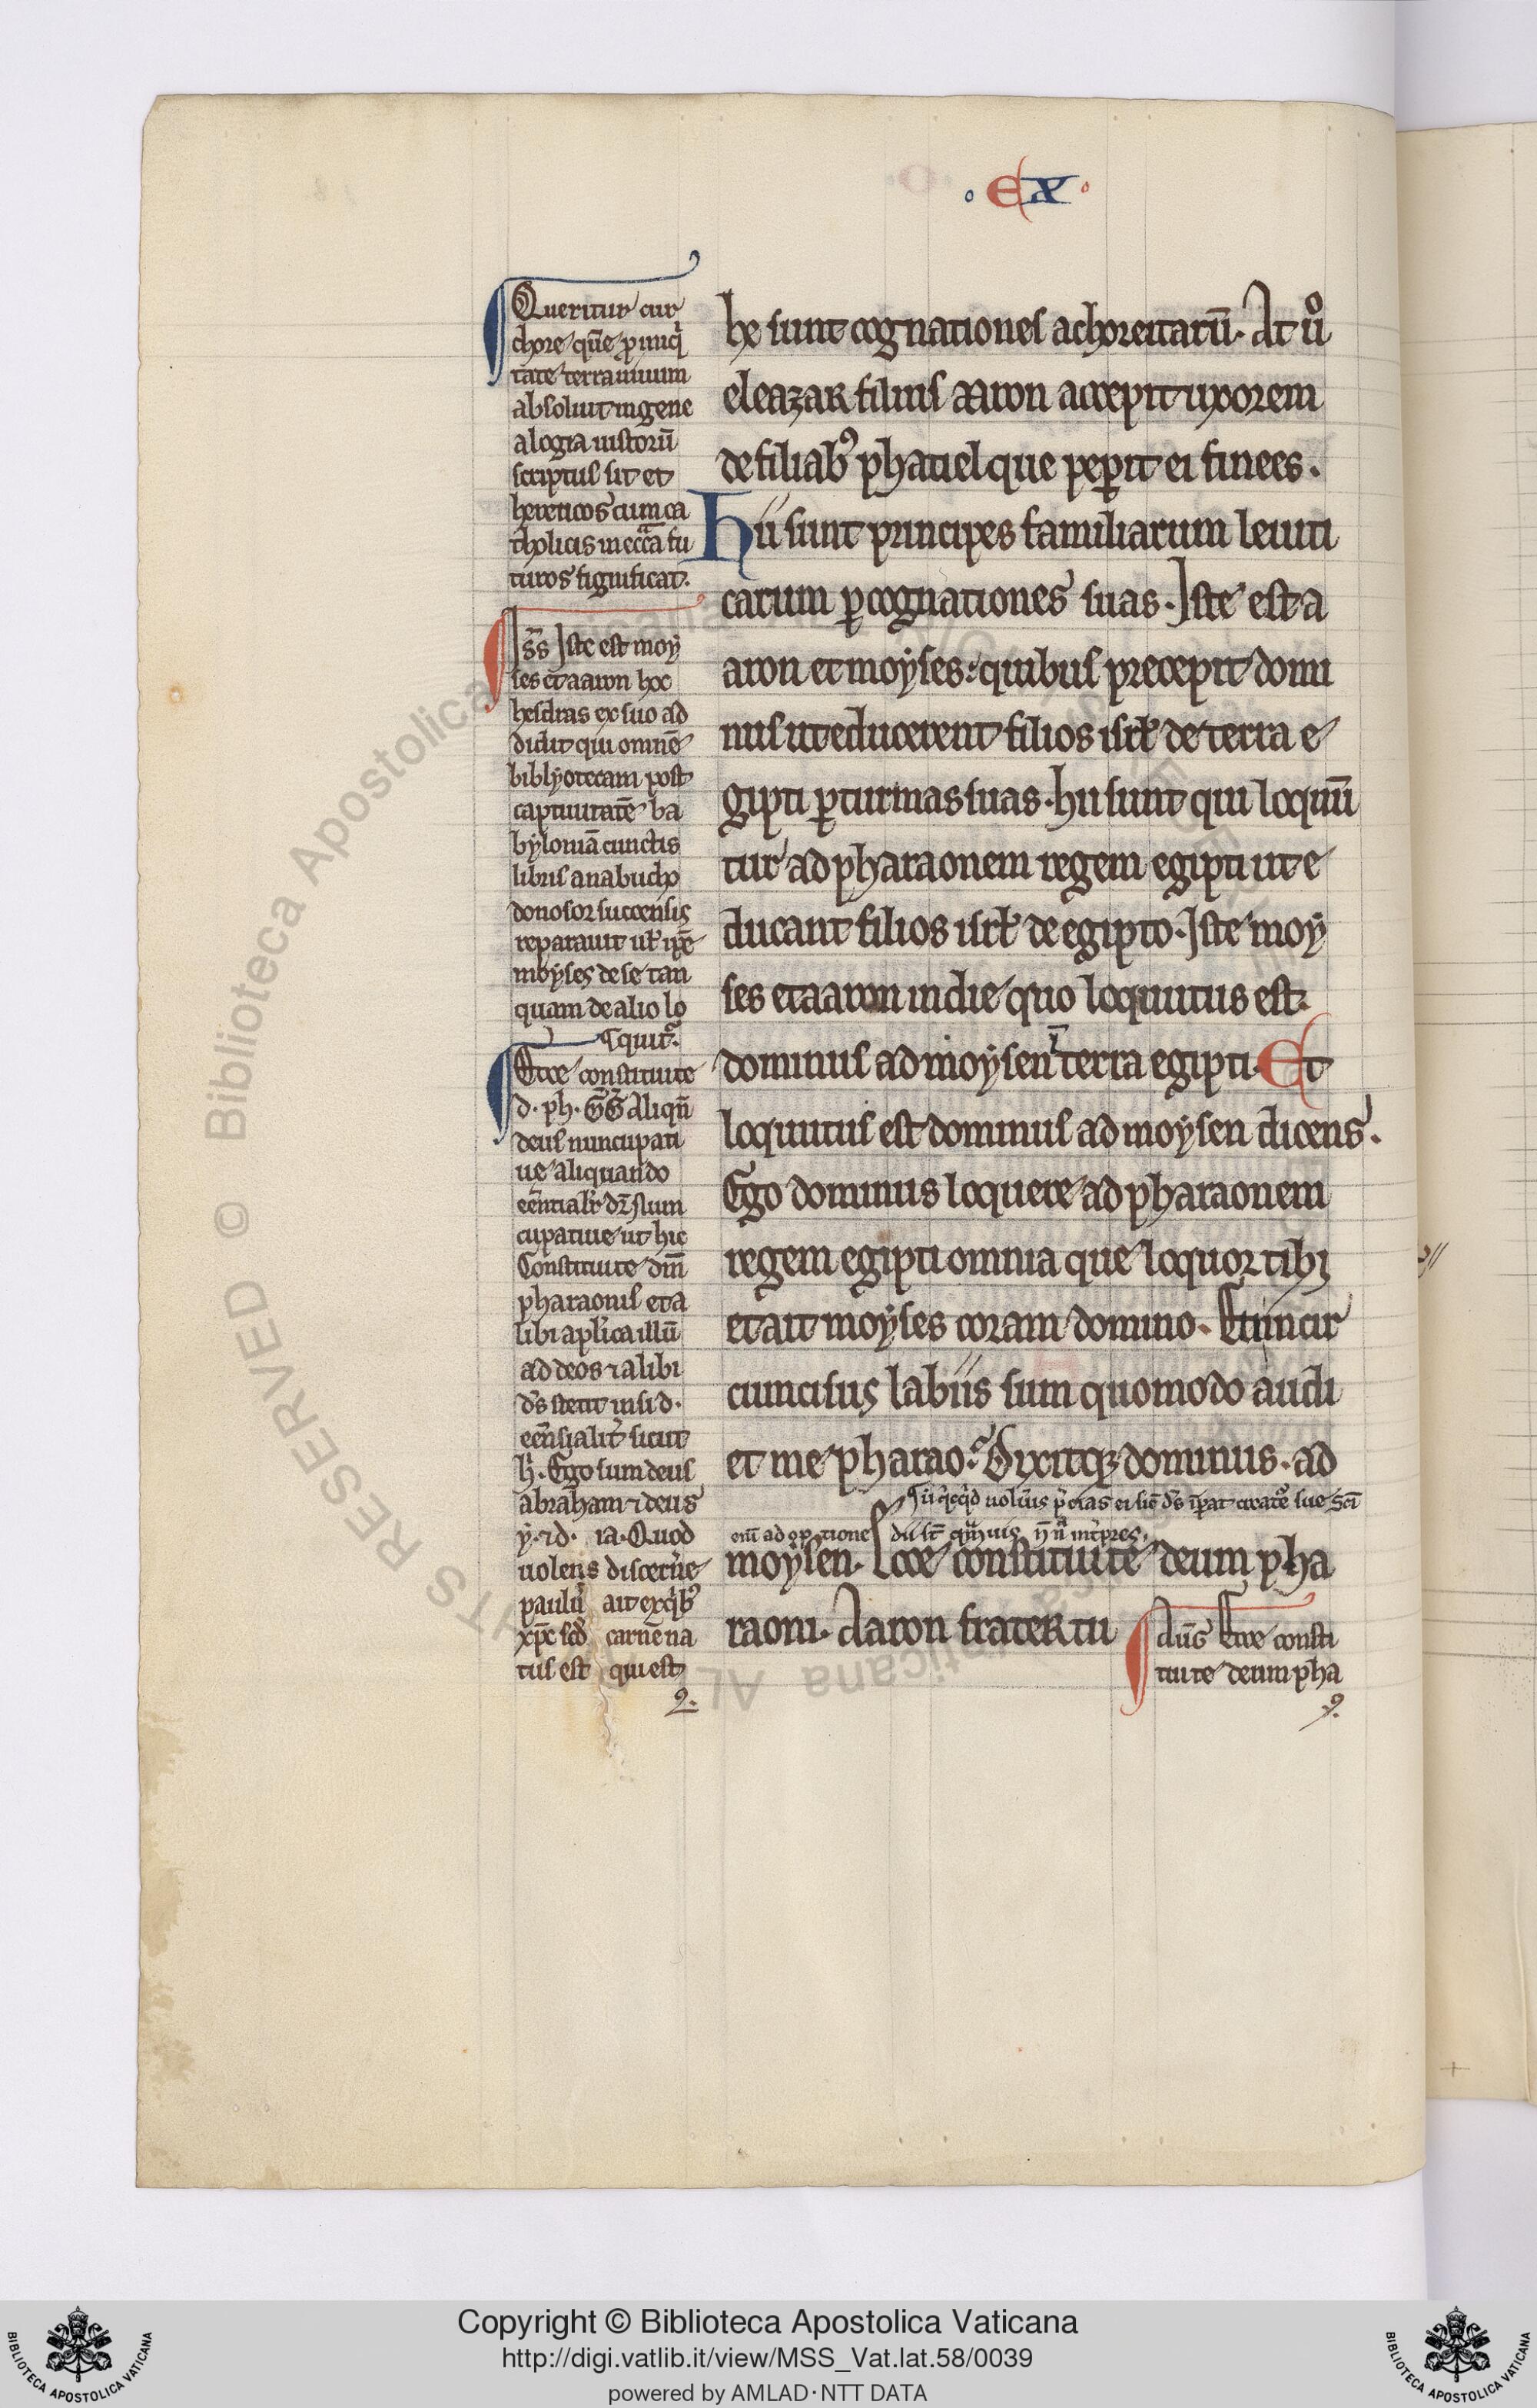 . EX .
Queritur cur
chore que͂ p iniqͥ
tate terra uiuum
absoluit in gene
alogia iustoru͂
scriptus sit et
hereticos cum ca
tholicis in ecc͂a fu
turos significat.
Iste est moy
ses et aaron hoc
hesdras ex suo ad
didit qui omne͂
biblyotecam post
captiuitate͂ ba
bylonia͂ cunctis
libris a nabucho
donosor succensis
reparauit ul' ip͂e
moyses de se tan
quam de alio lo
quit͛.
Ecce constitui te
d. ph. GG Aliqn͂
deus nuncupati
ue aliquando
ee͂ntialr͛ dr͂ Nun
cupatiue ut hic
Constitui te dm͂
pharaonis et a
libi aplica illu͂
ad deos ⁊ alibi
ds͂ stetit in si. d.
ee͂nsialit͛ sicut
h͛. Ego sum deus
abraham ⁊ deus
y. ⁊ d. ia. Quod
uolens discerne͛
paulus ait ex qͥb⁹
xp͂c scd͂ carne͂ na
tus est qui est
he sunt cognationes achoreitaru͂. At uͦ
eleazar filius aaron accepit uxorem
de filiab⁹ phatiel que pep̱it ei finees.
Hii sunt principes familiarum leuiti
carum ꝑ cognationes suas. Iste est a
aron et moyses: quibus precepit domi
nus ut educerent filios isrl̓ de terra e
gipti ꝑ turmas suas. hii sunt qui loquu͂
tur ad pharaonem regem egipti ut e
ducant filios isrl̓ de egipto. Iste moy
ses et aaron in die quo loquutus est
dominus ad moysen ī terra egipti. Et
loquutus est dominus ad moysen dicens.
Ego dominus loquere ad pharaonem
regem egipti omnia que loquor tibi
et ait moyses coram domino. En incir
cumcisus labiis sum quomodo audi
et me pharao? Dixitqꝫ dominus. ad
moysen. Ecce constitui te deum pha
raoni. Aaron frater tu
Aug͂ Ecce consti
tui te deum pha
Copyright © Biblioteca Apostolica Vaticana
http://digi.vatlib.it/view/MSS_Vat.lat.58/0039
powered by AMLAD·NTT DATA
BIBLIOTECA APOSTOLICA VATICANA
BIBLIOTECA APOSTOLICA VATICANA